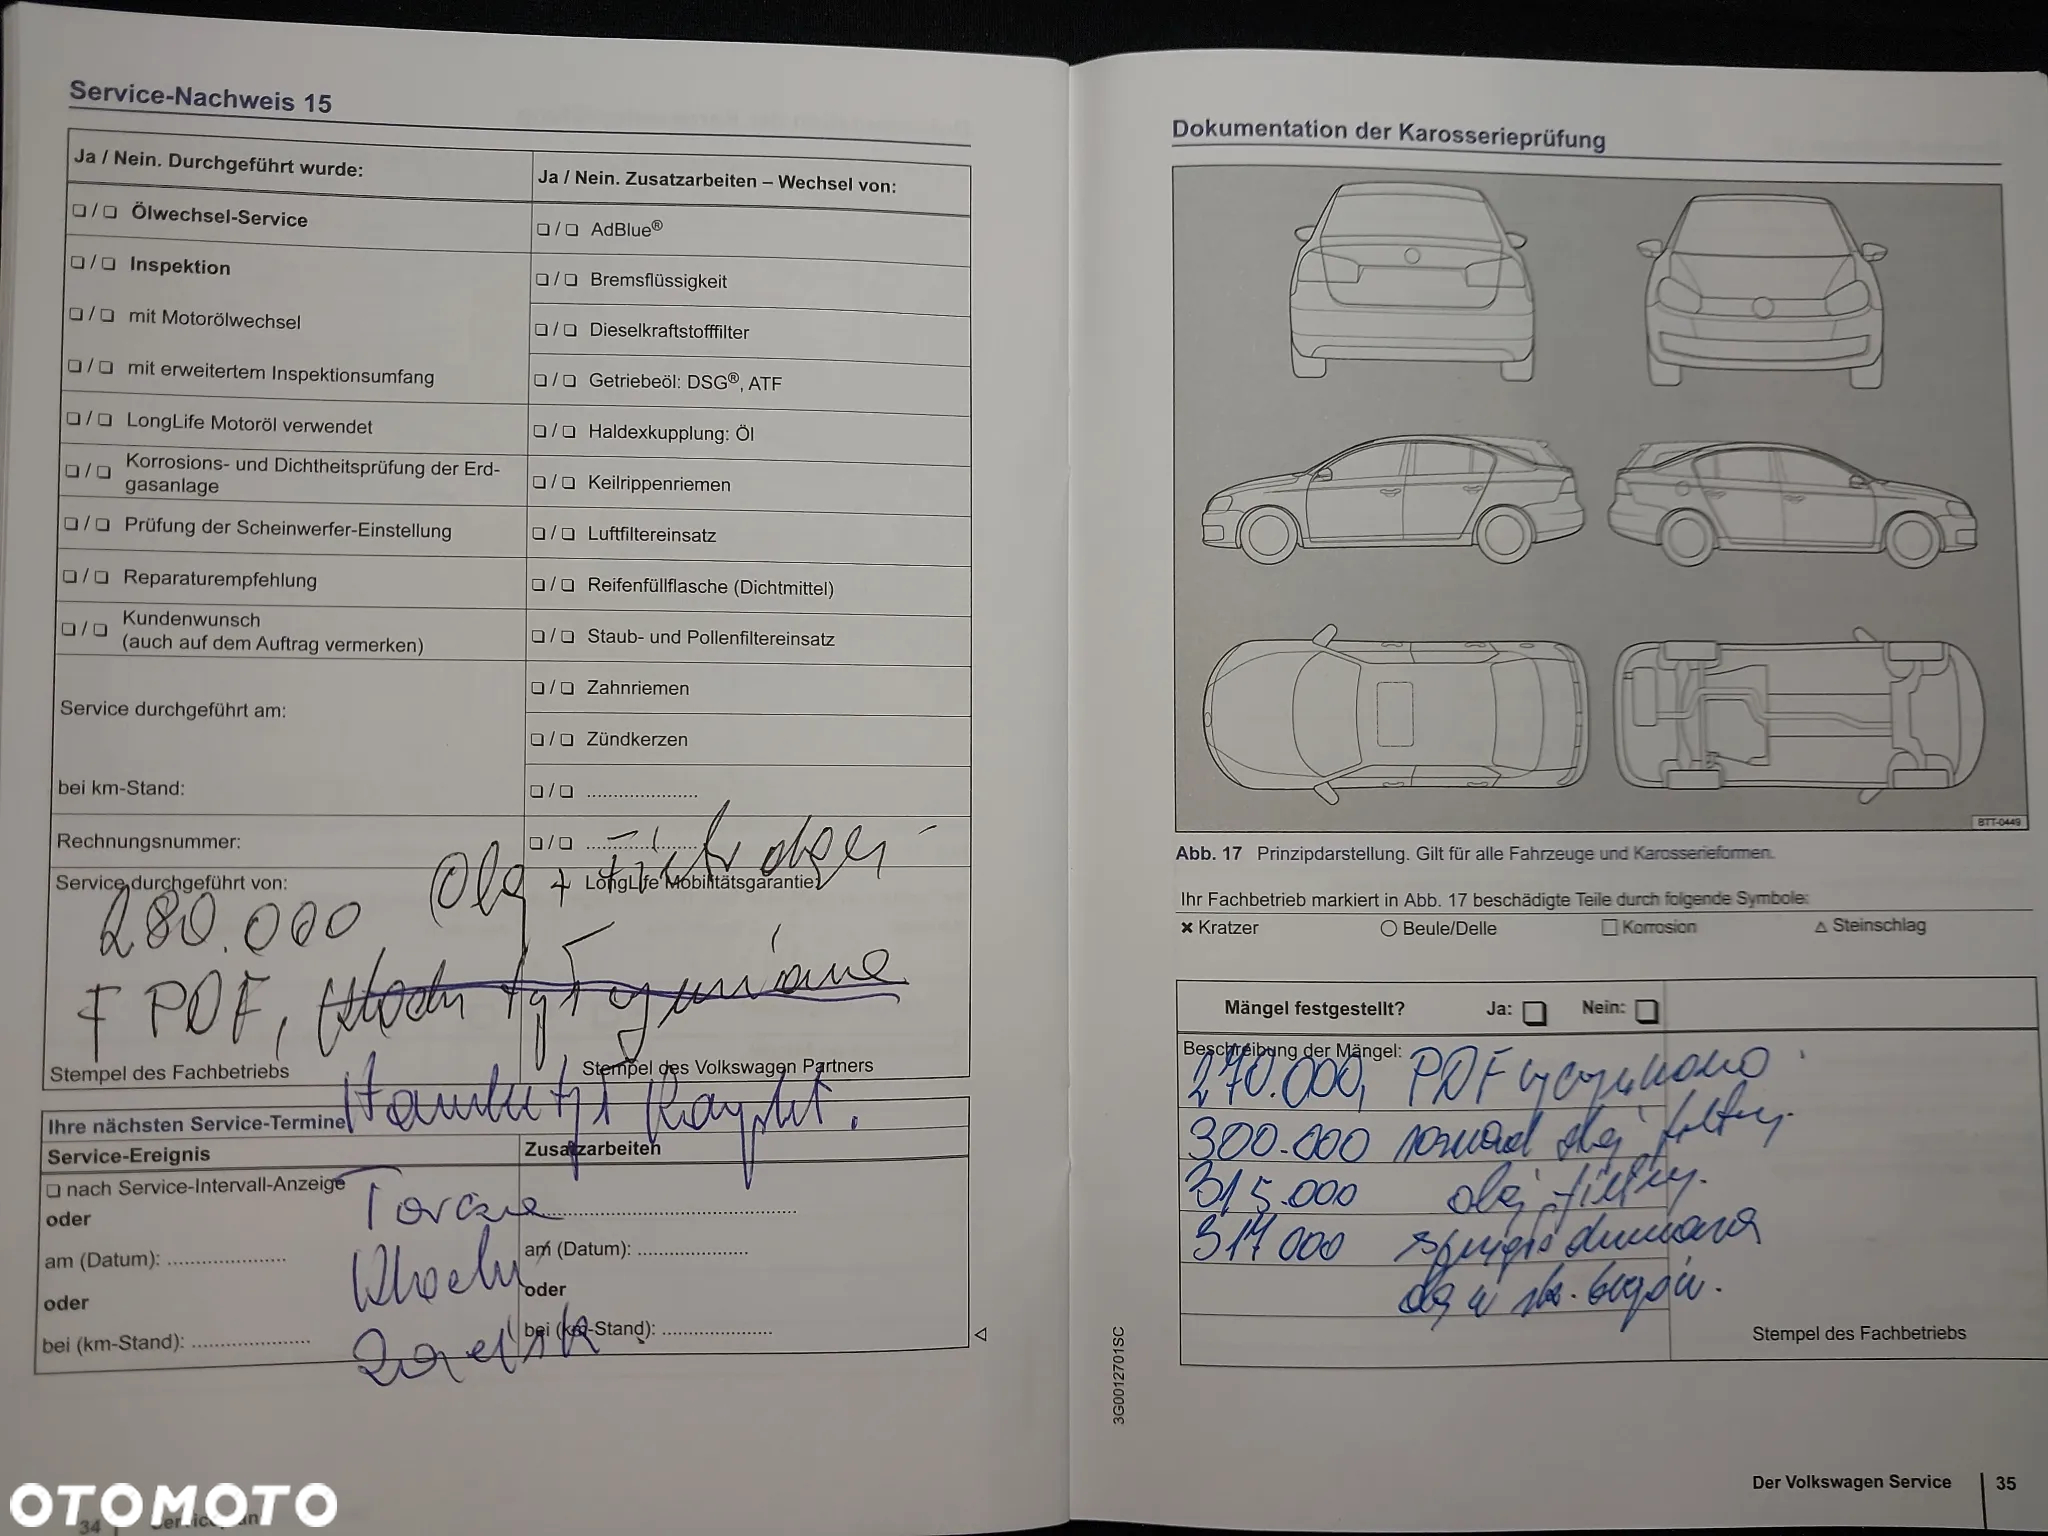 Service-Nachweis 15
Ja / Nein. Durchgeführt wurde:
❏ / ❏ Ölwechsel-Service
❏ / ❏ Inspektion
❏ / ❏ mit Motorölwechsel
❏ / ❏ mit erweitertem Inspektionsumfang
❏ / ❏ LongLife Motoröl verwendet
❏ / ❏ Korrosions- und Dichtheitsprüfung der Erd-
gasanlage
❏ / ❏ Prüfung der Scheinwerfer-Einstellung
❏ / ❏ Reparaturempfehlung
❏ / ❏ Kundenwunsch
(auch auf dem Auftrag vermerken)
Service durchgeführt am:
bei km-Stand:
Rechnungsnummer:
Ja / Nein. Zusatzarbeiten – Wechsel von:
❏ / ❏ AdBlue®
❏ / ❏ Bremsflüssigkeit
❏ / ❏ Dieselkraftstofffilter
❏ / ❏ Getriebeöl: DSG®, ATF
❏ / ❏ Haldexkupplung: Öl
❏ / ❏ Keilrippenriemen
❏ / ❏ Luftfiltereinsatz
❏ / ❏ Reifenfüllflasche (Dichtmittel)
❏ / ❏ Staub- und Pollenfiltereinsatz
❏ / ❏ Zahnriemen
❏ / ❏ Zündkerzen
❏ / ❏ ......................
❏ / ❏ ......................
Service durchgeführt von:
LongLife Mobilitätsgarantie:
280.000
+ PDF, klocki
Stempel des Fachbetriebs
Stempel des Volkswagen Partners
Ihre nächsten Service-Termine
Service-Ereignis
Zusatzarbeiten
❏ nach Service-Intervall-Anzeige
Tarcze
oder
am (Datum): ......................
Klocki
am (Datum): ......................
oder
oder
bei (km-Stand): ......................
bei (km-Stand): ......................
34
Serviceplan
Dokumentation der Karosserieprüfung
BTT-0449
Abb. 17 Prinzipdarstellung. Gilt für alle Fahrzeuge und Karosserieformen.
Ihr Fachbetrieb markiert in Abb. 17 beschädigte Teile durch folgende Symbole:
× Kratzer ○ Beule/Delle □ Korrosion △ Steinschlag
Mängel festgestellt? Ja: ❏ Nein: ❏
Beschreibung der Mängel:
270.000, PDF
300.000 rozrząd olej filtry.
315.000 olej filtry.
317000
Stempel des Fachbetriebs
3G0012701SC
Der Volkswagen Service 35
OTOMOTO